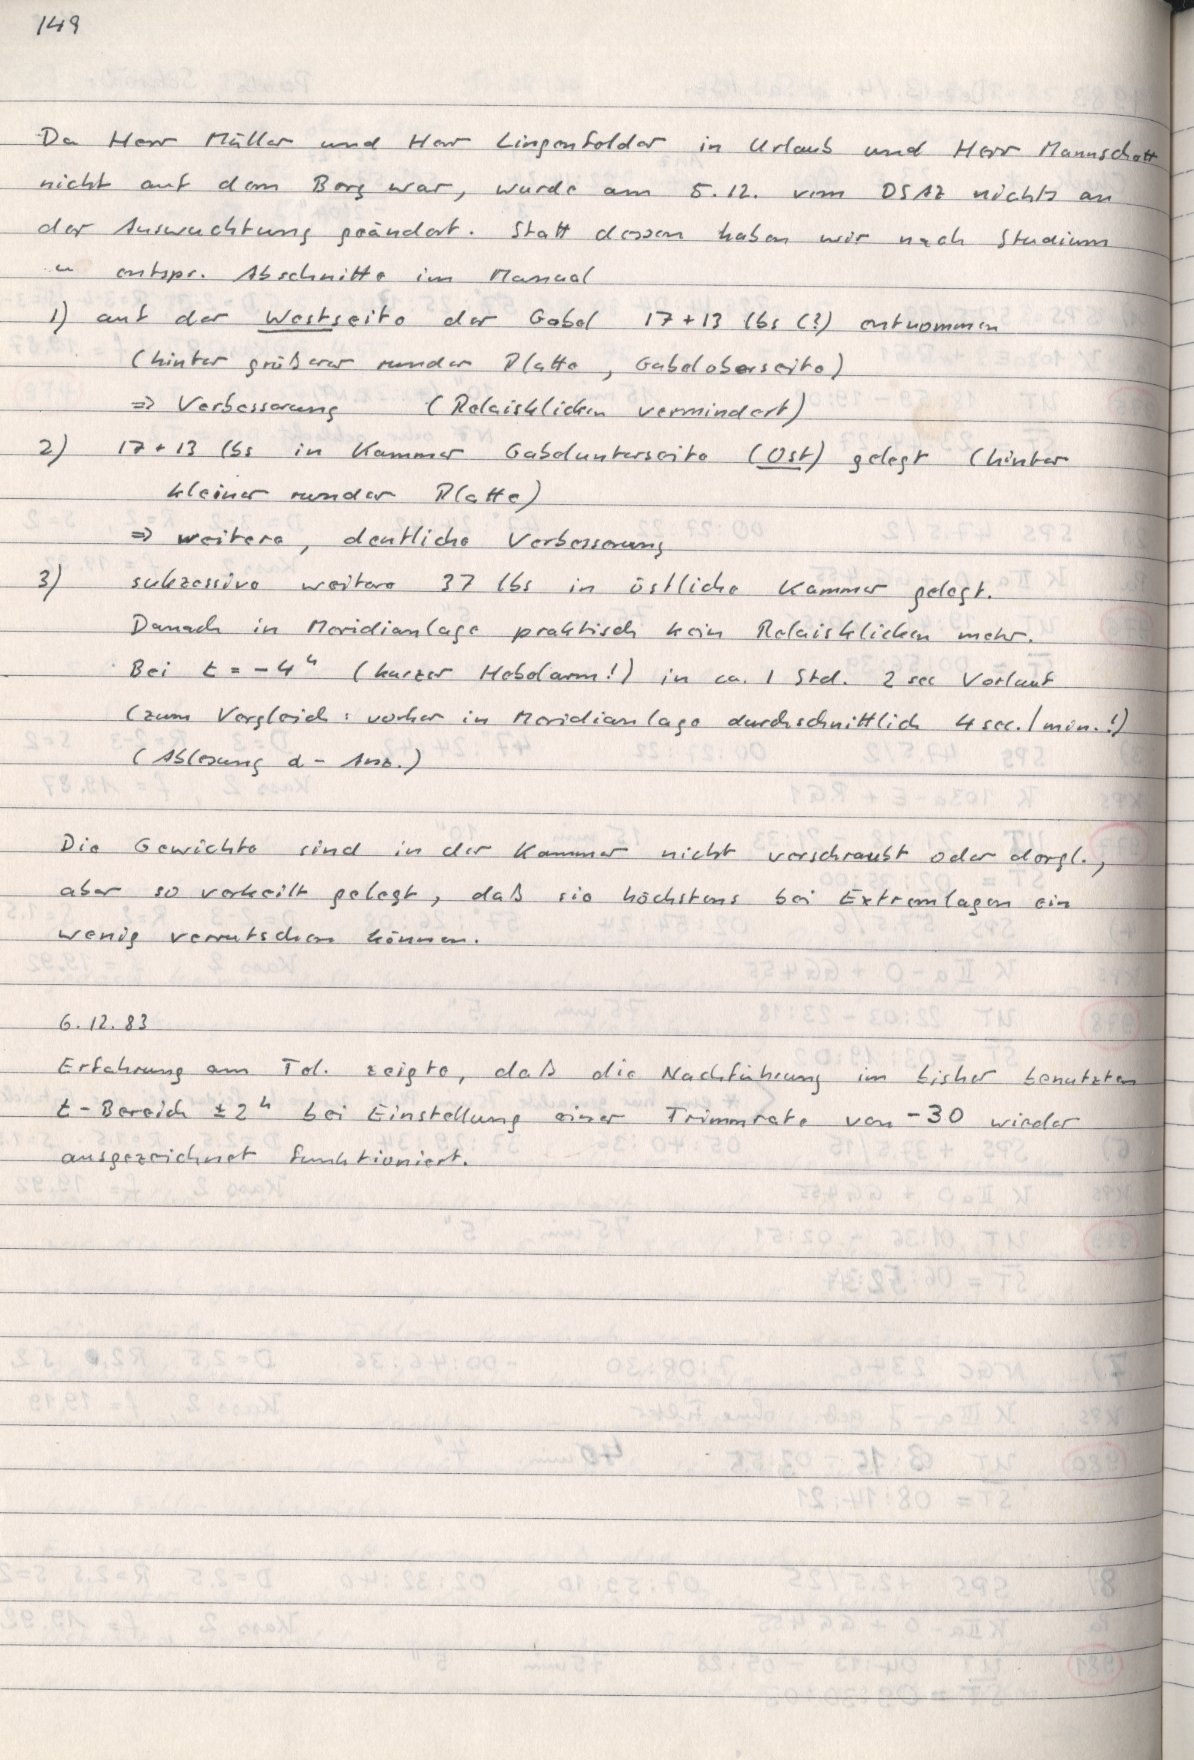 149
Da Herr Müller und Herr Lingenfelder in Urlaub und Herr Mannschott
nicht auf dem Berg war, wurde am 5.12. vom DSAZ nichts an
der Auswuchtung geändert. Statt dessen haben wir nach Studium
entspr. Abschnitte im Manual
1) auf der Westseite der Gabel 17+13 lbs (?) entnommen
(hinter größerer runder Platte, Gabeloberseite)
⇒ Verbesserung (Relaisklicken vermindert)
2) 17+13 lbs in Kammer Gabelunterseite (Ost) gelegt (hinter
kleiner runder Platte)
⇒ weitere, deutliche Verbesserung
3) sukzessive weitere 37 lbs in östliche Kammer gelegt.
Danach in Meridianlage praktisch kein Relaisklicken mehr.
Bei t = -4ʰ (kurzer Hebelarm!) in ca. 1 Std. 2 sec Vorlauf
(zum Vergleich: vorher in Meridianlage durchschnittlich 4 sec./min.!)
(Ablesung α-Anz.)
Die Gewichte sind in der Kammer nicht verschraubt oder dergl.,
aber so verkeilt gelegt, daß sie höchstens bei Extremlagen ein
wenig verrutschen können.
6.12.83
Erfahrung am Tel. zeigte, daß die Nachführung im bisher benutzten
t-Bereich ±2ʰ bei Einstellung einer Trimmrate von -30 wieder
ausgezeichnet funktioniert.